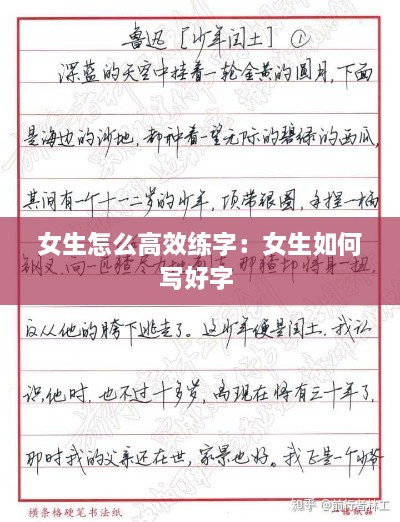 鲁迅［少年闰土］①
深蓝的天空中挂着一轮金黄的圆月，下面
是海边的沙地，都种着一望无际的碧绿的西瓜，
其间有一个十一二岁的少年，项带银圈，手捏一柄
女生怎么高效练字：女生如何
写好字
钢叉，向一匹猹尽力地刺去，那猹却将身一扭，
反从他的胯下逃走了。这少年便是闰土，我认
识他时，也不过十多岁，离现在将有三十年了，
那时我的父亲还在世，家景也好。我正是一个少爷
知乎 @前行者林工
横条格硬笔书法纸